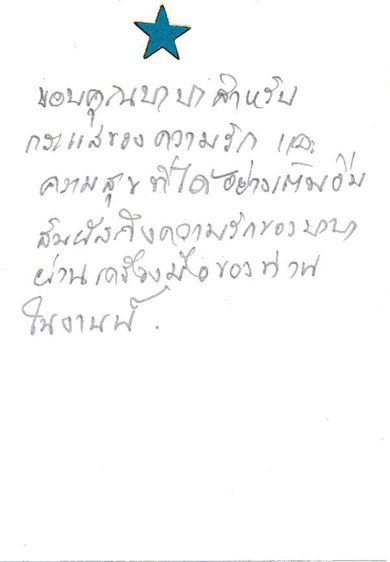 ขอบคุณบาบาสำหรับ
กระแสของความรัก และ
ความสุขที่ได้อย่างเต็มอิ่ม
สัมผัสถึงความรักของบาบา
ผ่านเครื่องมือของท่าน
ในงานนี้.